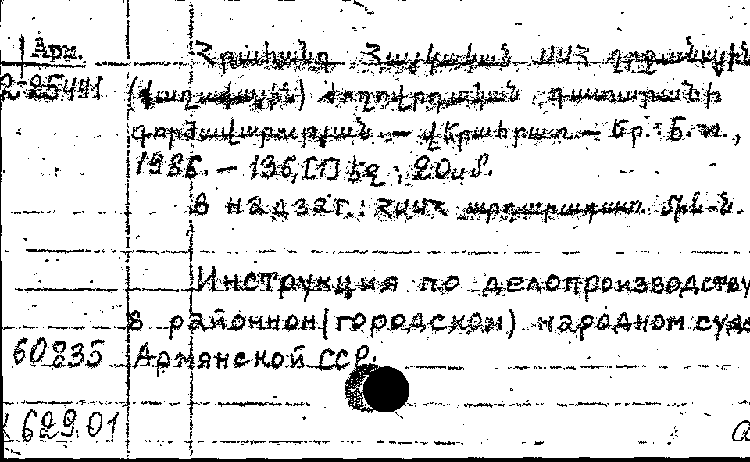 Арм.
2-25491
Հրահանգ Հայկական ՍՍՀ շրջանային
(քաղաքային) ժողովրդական դատարանի
գործավարության. — Վերահրատ. — Եր.: Б. и.,
1986. — 136, [1] էջ ; 20 սմ.
В надзаг.: ՀՍՍՀ արդարադատ. մին-ն.
Инструкция по делопроизводству
в районном (городском) народном суде
60835 Армянской ССР.
629.01